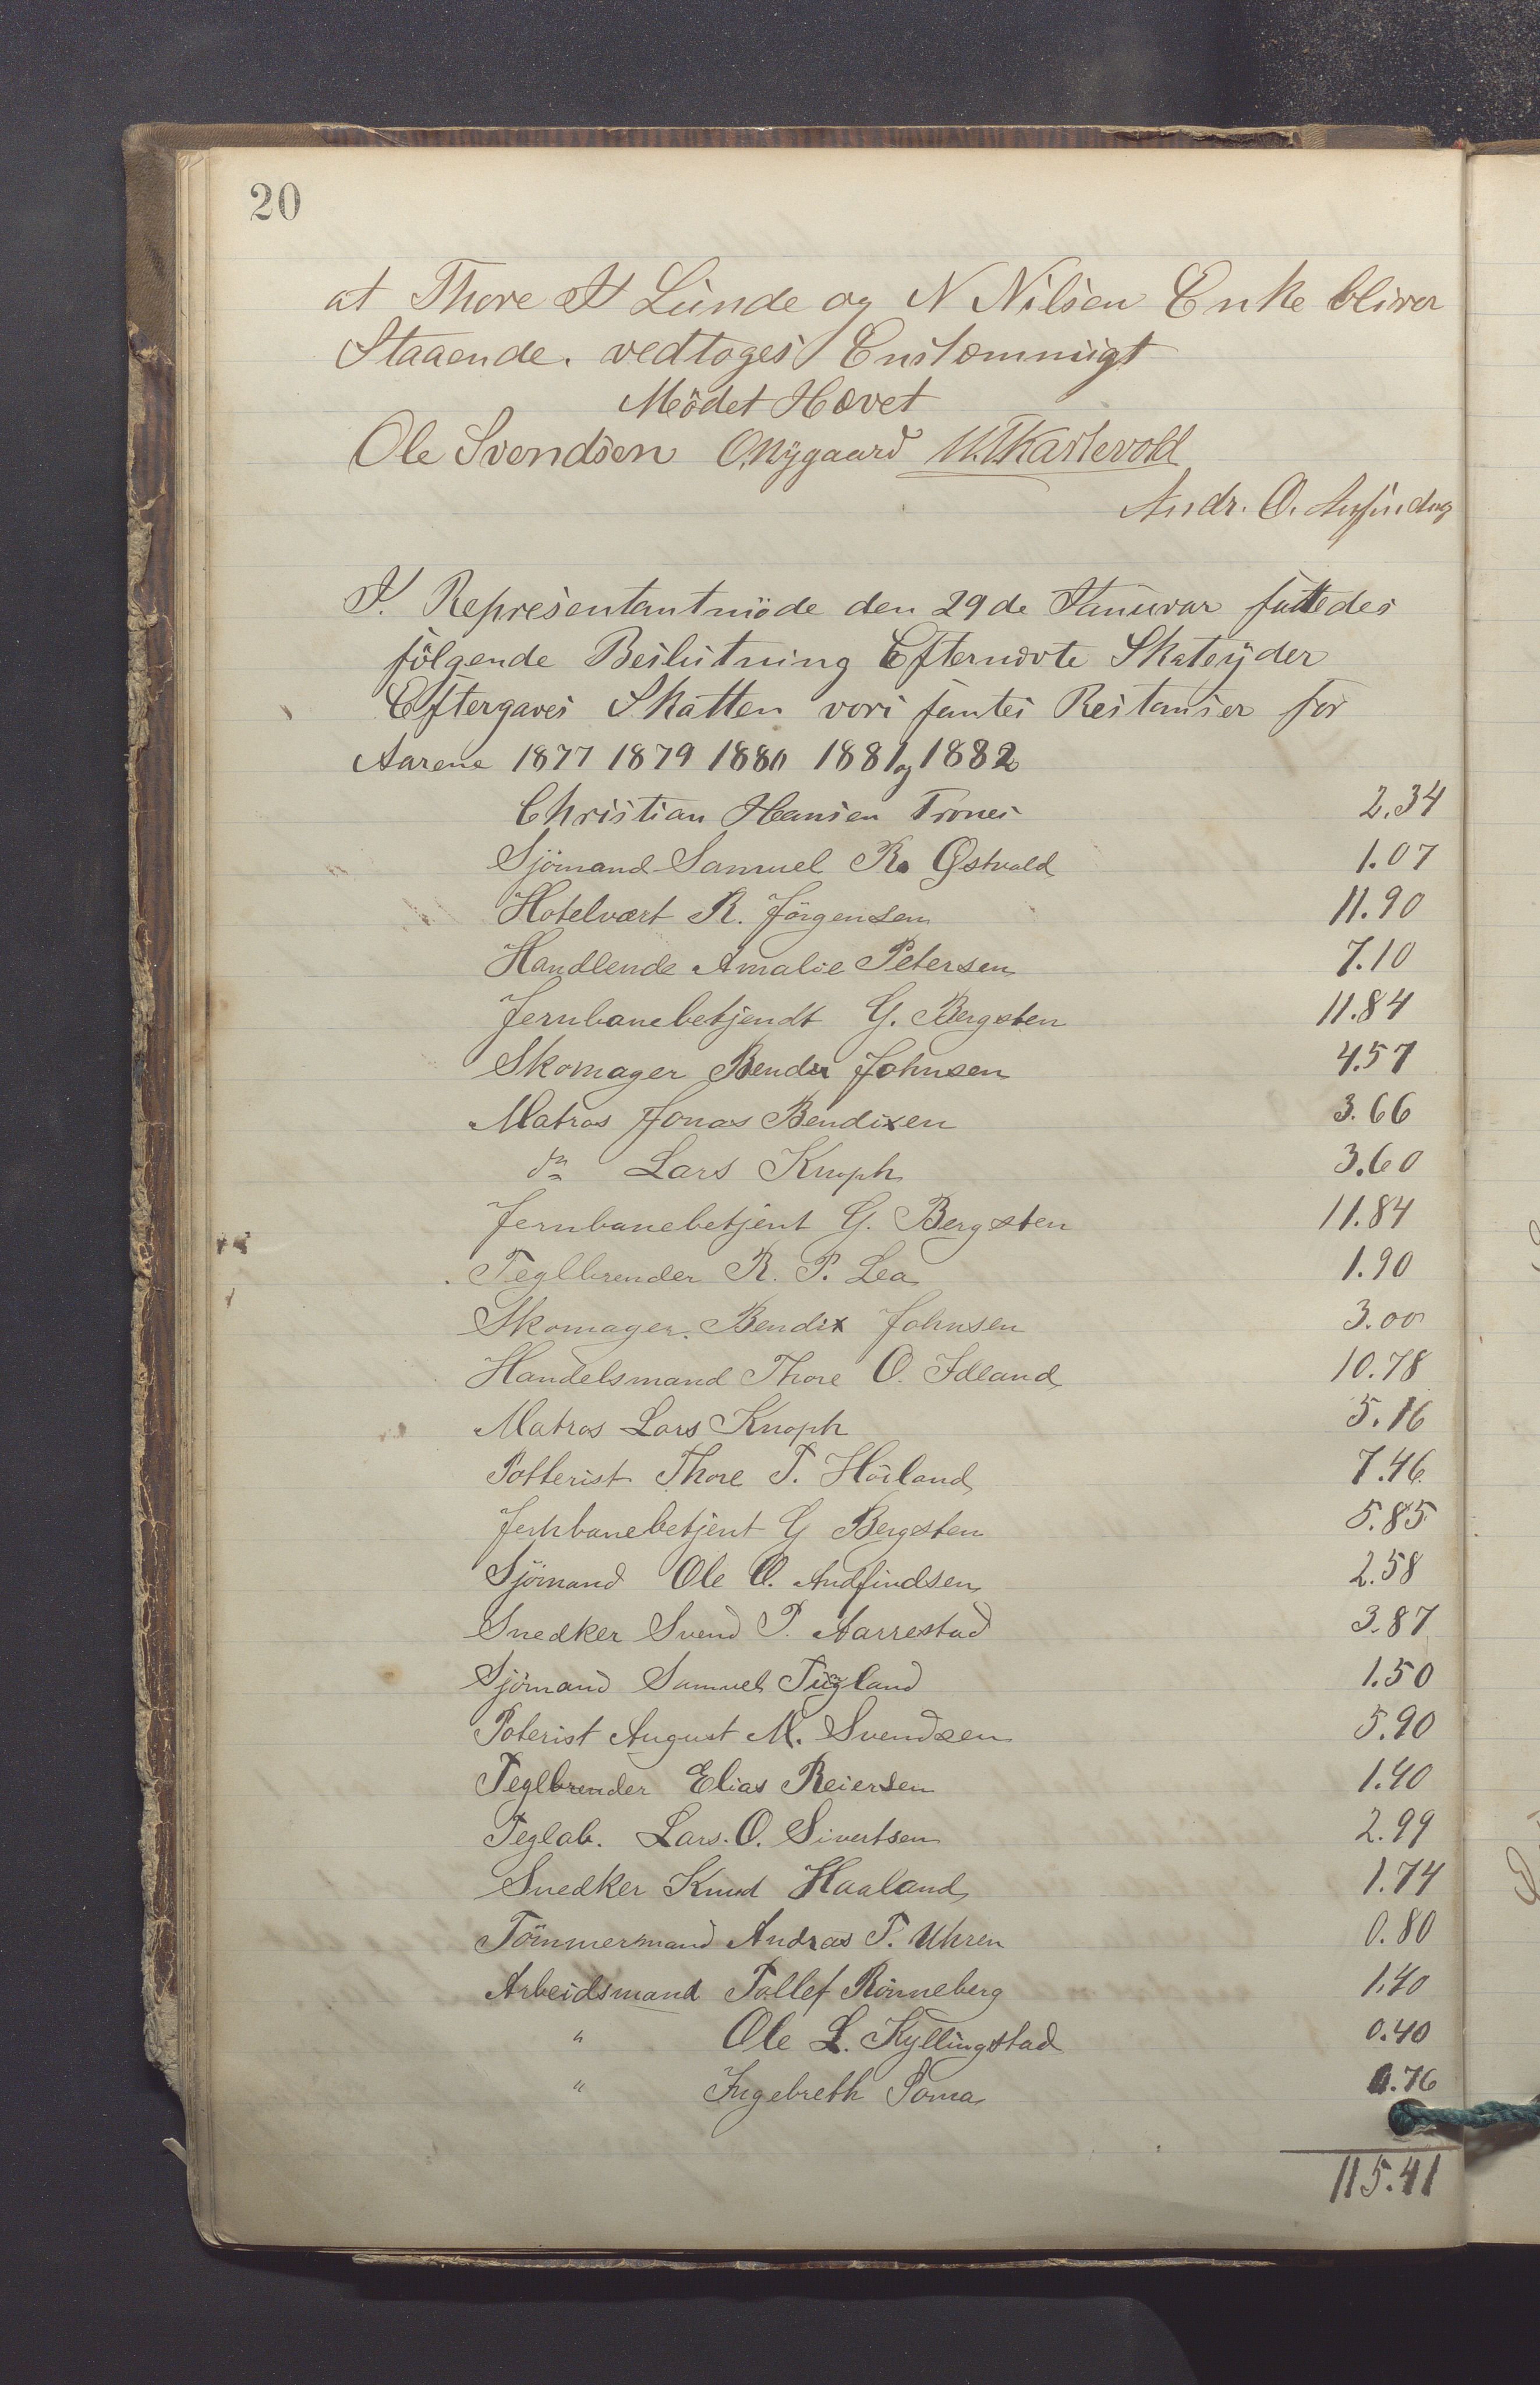 20
at Thore A Lunde og N Nilsen Enke bliver
Staaende. vedtoges Enstemmigt
Mödet Hævet
Ole Svendsen O. Nygaard Kartevold
Andr. O.
I. Representantmöde den 29de Januvar fattedes
fölgende Beslutning Efternævte Skatyder
Eftergaves Skatten vori fantes Restanser for
Aarene 1877 1879 1880 1881 og 1882
Christian Hansen Trones 2.34
Sjömand Samuel R. Østvold 1.07
Hotelvært R. Jörgensen 11.90
Handlende Amalie Petersen 7.10
Jernbanebetjendt G. Bergsten 11.84
Skomager Bendix Johnsen 4.57
Matros Jonas Bendixen 3.66
do Lars Knoph 3.60
Jernbanebetjent G. Bergsten 11.84
Teglbrender R. P. Lea 1.90
Skomager. Bendix Johnsen 3.00
Handelsmand Thore O. Idland 10.78
Matros Lars Knoph 5.16
Potterist Thore T. Höiland 7.46
Jernbanebetjent G Bergsten 5.85
Sjömand Ole O. Andfindsen 2.58
Snedker Svend P. Aarrestad 3.87
Sjömand Samuel Tügland 1.50
Poterist August M. Svendsen 5.90
Teglbrender Elias Reiersen 1.40
Teglab. Lars. O. Sivertsen 2.99
Snedker Knud Haaland 1.74
Tömmermand Andras T. Uhren 0.80
Arbeidsmand Tollef Rönneberg 1.40
" Ole L. Kyllingstad 0.40
" Ingebreth Soma 0.76
115.41